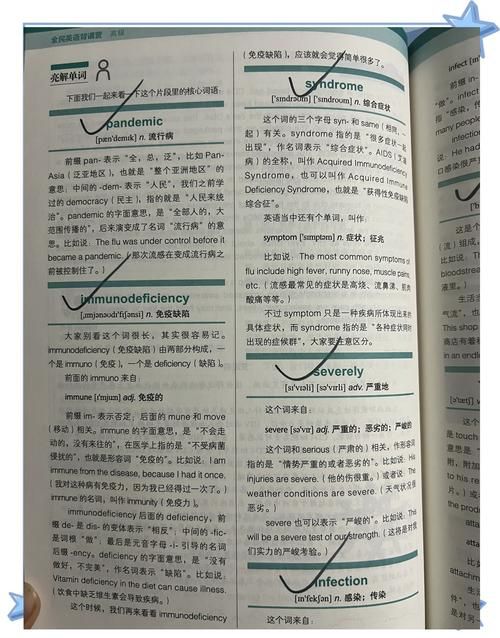 全民英语背诵营 高级
亮解单词
下面我们一起来看一下这个片段里的核心词语:
pandemic
[pænˈdemɪk] n. 流行病
前缀 pan- 表示“全,总,泛”,比如 Pan-
Asia(泛亚地区),也就是“整个亚洲地区”的
意思;中间的 -dem- 表示“人民”,我们之前学
过的 democracy(民主),指的就是“人民来统
治”。pandemic 的字面意思,是“全部人的,大
范围传播的”,后来演变成了名词“流行病”的意
思。比如说:The flu was under control before it
became a pandemic.(那次流感在变成流行病之
前被控制住了。)
immunodeficiency
[ˌɪmjənəʊdɪˈfɪʃənsi] n. 免疫缺陷
大家别看这个词很长,其实很容易记。
immunodeficiency(免疫缺陷)由两部分构成,一
个是 immuno(免疫),一个是 deficiency(缺陷)。
前面的 immuno 来自:
immune [ɪˈmjuːn] adj. 免疫的
前缀 im- 表示否定;后面的 mune 和 move
(移动)相关。immune 的字面意思,是“不会走
动的,没有来往的”,在医学上指的是“不受病菌
侵扰的”,也就是形容词“免疫的”。比如说:I am
immune from the disease, because I had it once.
(我对这种病有免疫力,因为我已经得过一次了。)
immune 的名词,叫作 immunity(免疫力)。
immunodeficiency 后面的 deficiency,前
缀 de- 是 dis- 的变体表示“相反”;中间的 -fic-
是词根“做”;最后是元音字母 -i- 引导的名词
后缀 -ency。deficiency 的字面意思,是“没有
做好,不完美”,作名词表示“缺陷”。比如说:
Vitamin deficiency in the diet can cause illness.
(饮食中缺乏维生素会导致疾病。)
这个时候,我们再来看看 immunodeficiency
(免疫缺陷),应该就会觉得简单很多了。
syndrome
[ˈsɪndrəʊm] [ˈsɪndroʊm] n. 综合症状
这个词的三个字母 syn- 和 same(相同,一
起)有关。syndrome 指的是“很多症状一起
出现”,作名词表示“综合症”。AIDS(艾滋
病)的全称,叫作 Acquired Immunodeficiency
Syndrome,也可以叫作 Acquired Immune
Deficiency Syndrome,也就是“获得性免疫缺陷
综合征”。
英语当中还有个单词,叫作:
symptom [ˈsɪmptəm] n. 症状;征兆
比如说:The most common symptoms of
flu include high fever, runny nose, muscle pains,
etc.(流感最常见的症状是高烧、流鼻涕、肌肉
酸痛等等。)
不过 symptom 只是一种疾病所体现出来的
具体症状,而 syndrome 指的是“各种症状同时
出现的症候群”,大家要注意区分。
severely
[sɪˈvɪəli] [səˈvɪrli] adv. 严重地
这个词来自:
severe [səˈvɪr] adj. 严重的;恶劣的;严峻的
这个词和 serious(严肃的)相关,作形容词
指的是“情势严重的或者恶劣的”。比如说:His
injuries are severe.(他的伤很重。)或者说:The
weather conditions are severe.(天气状况很
恶劣。)
severe 也可以表示“严峻的”。比如说:This
will be a severe test of our strength.(这将是对我
们实力的严峻考验。)
infection
[ɪnˈfekʃən] n. 感染;传染
这个词来自:
infect [ɪn
前缀 in-
“做”。infect
指“感染,传
many people
infect
说:He had
口感染很严重
这是个
(流)组成,
比如说:Th
bloodstream
液里。)
生活当
气流”,也
This shop
商店有着
in an endle
是 touch
意思是
附,附加
to his re
片。)或
the produ
atta
atta
attachm